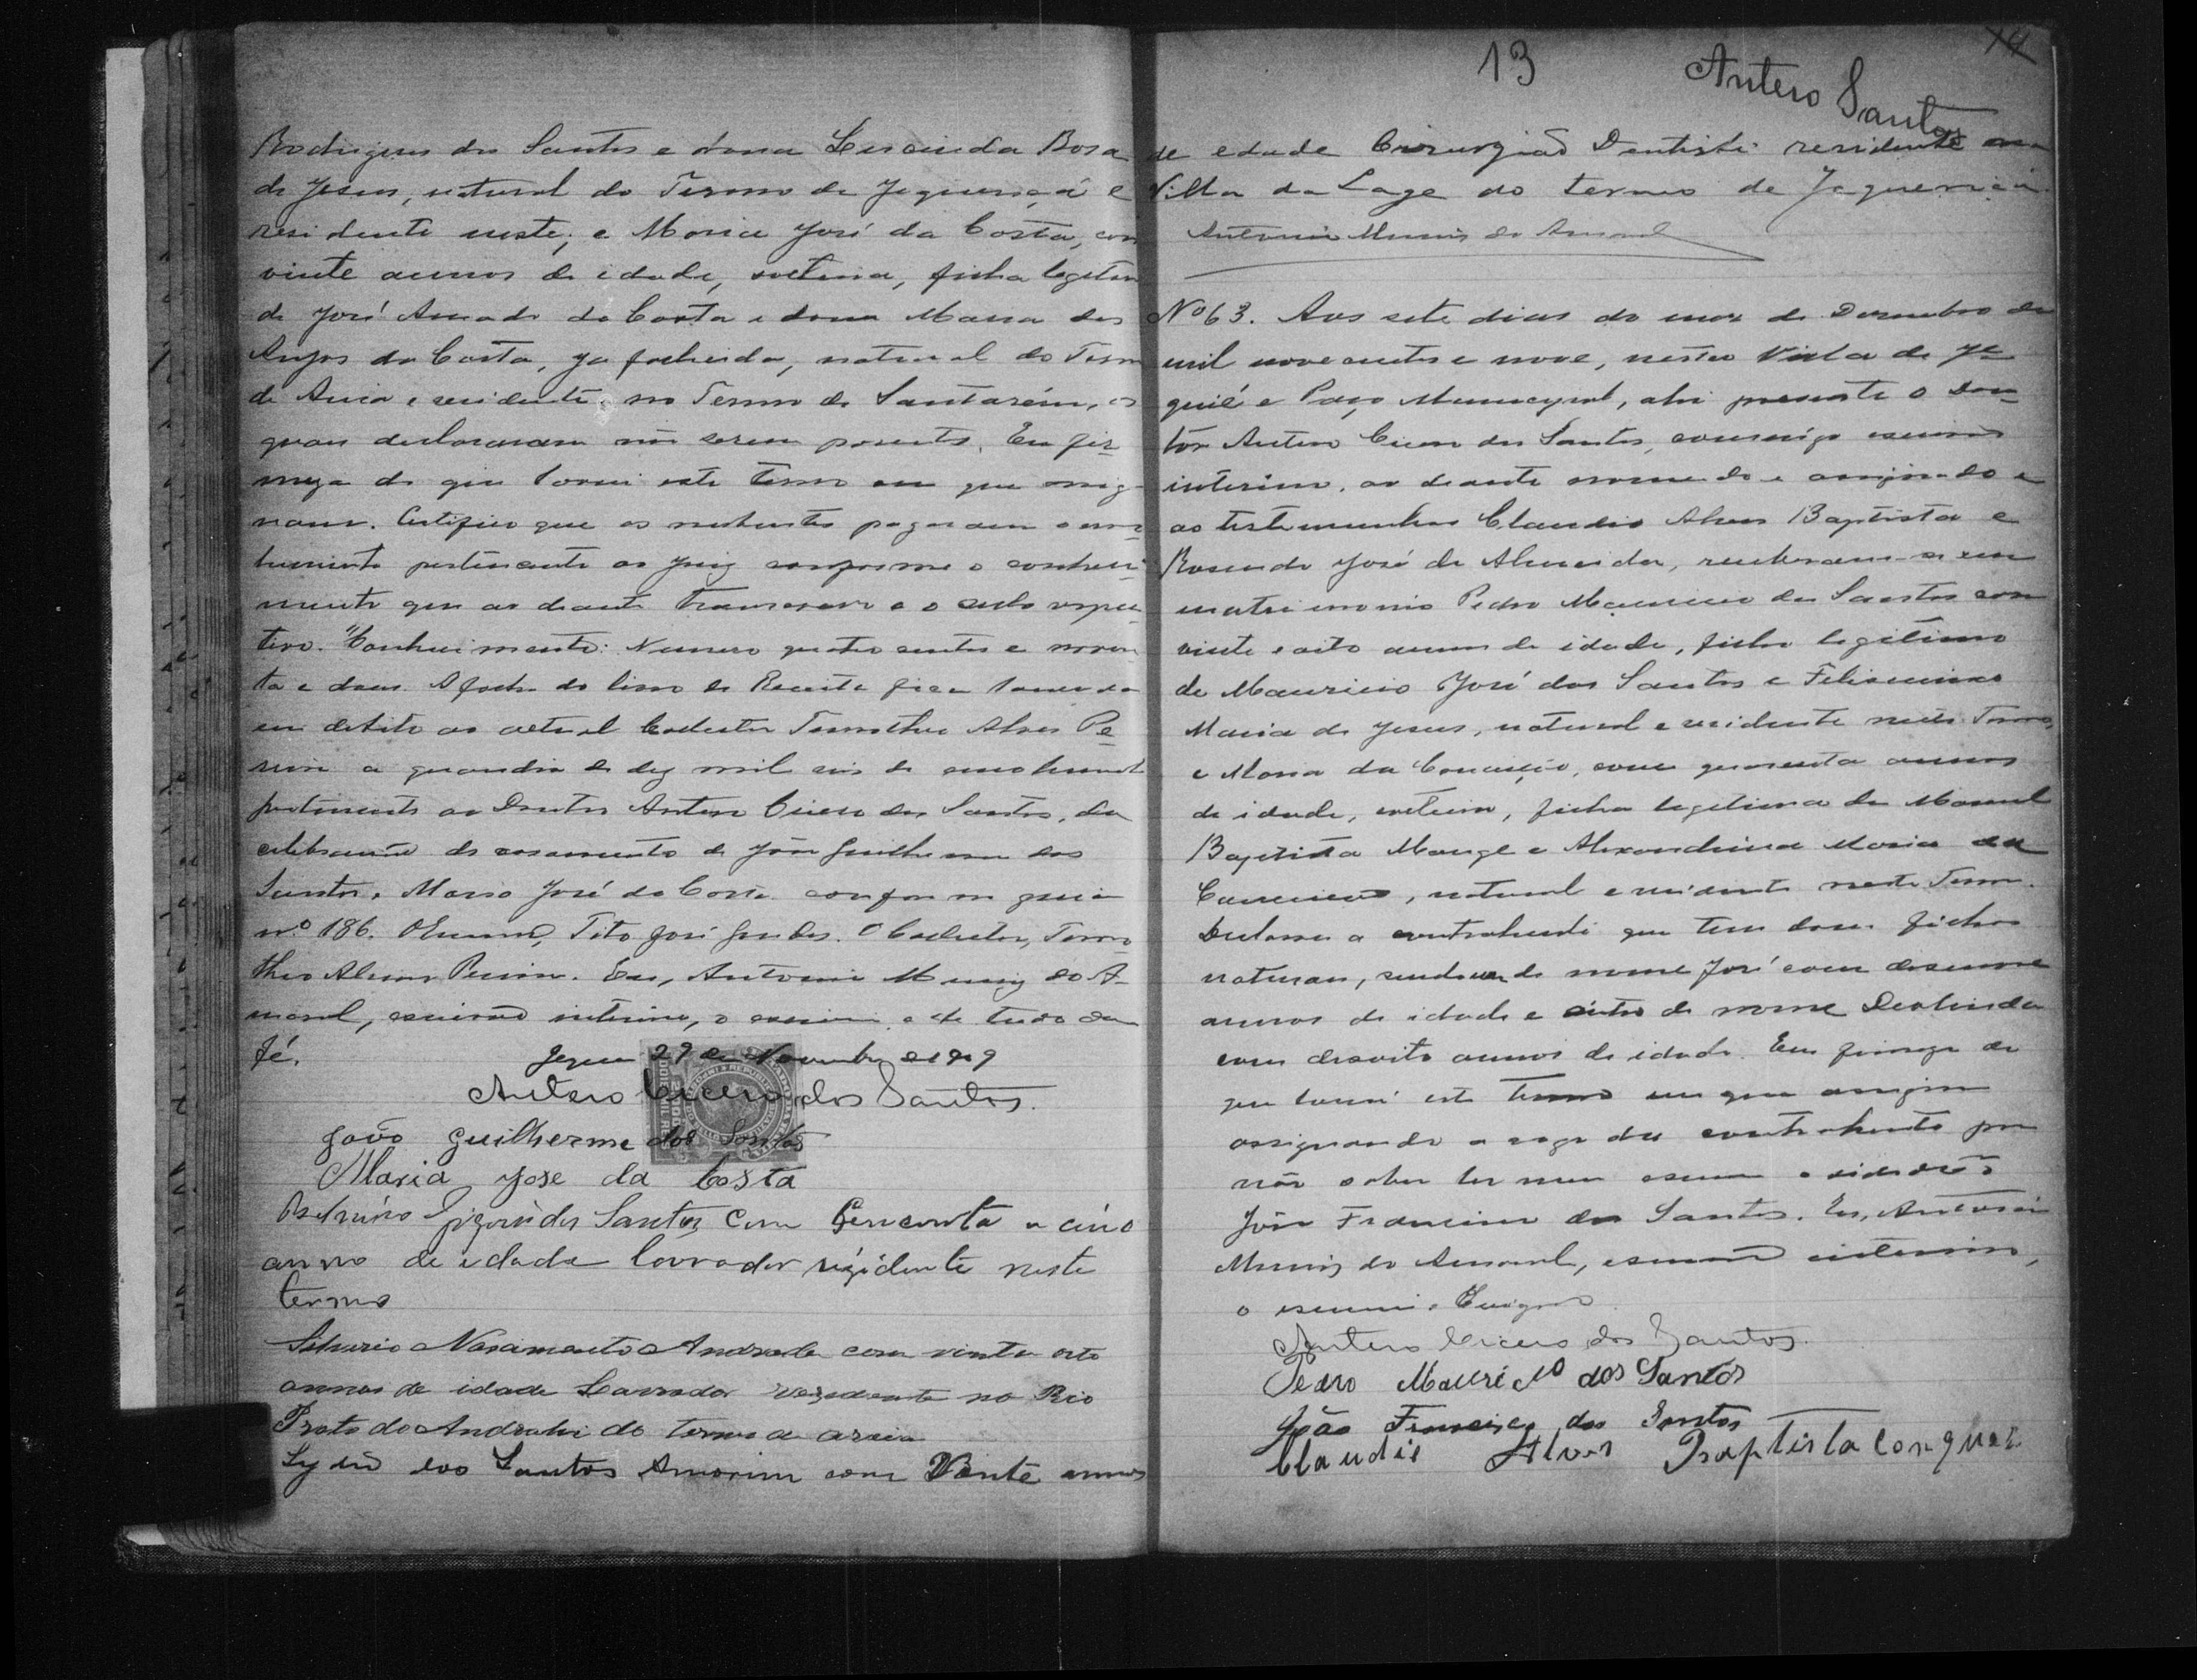 Rodrigues dos Santos e dona Lucinda Rosa
de Jesus, natural do Termo de Jequiriçá e
residente neste; e Maria José da Costa, com
vinte annos de idade, solteira, filha legitima
de José Amado da Costa e dona Maria dos
Anjos da Costa, já fallecida, natural do Termo
de Areia e residente no Termo de Santarém, os
quaes declararam não serem parentes. Em fir-
meza do que lavrei este termo em que assig-
nam. Certifico que os nubentes pagaram o emo-
lumento pertencente ao Juiz conforme o conheci-
mento que ao deante transcrevo e o sello respec-
tivo. "Conhecimento: Numero quatro centos e noven-
ta e dous. A folha do livro de Receita fica lançado
em debito ao actual Collector Timotheo Alves Pe-
reira a quantia de dez mil reis de emolumento
pertencente ao Doutor Antero Cicero dos Santos, da
celebração do casamento de João Guilherme dos
Santos e Maria José da Costa conforme guia
nº 186. Tito José. O Collector, Timo-
theo Alves Pereira. Eu, Antonio Muniz do A-
maral, escrivão interino, o escrevi e de tudo dou
fé. Jequié 29 de Novembro de 1909
Antero Cicero dos Santos.
João Guilherme dos Santos
Maria Jose da Costa
dos Santos com e cinco
anno de idade lavrador rezidente neste
termo
Nascimento Andrade com vinte oito
annos de idade Lavrador rezedente no Rio
Preto do Andrahi do termo de areia
dos Santos Amorim com Vinte annos
13
14
Antero Santos
de edade Cirurgião Dentista residente na
Villa da Lage do termo de Jequiriçá.
Antonio Muniz do Amaral
Nº 63. Aos sete dias do mez de Dezembro de
mil novecentos e nove, nesta Villa de Je-
quié e Paço Municipal, ahi presente o Dou-
tor Antero Cicero dos Santos, commigo escrivão
interino, ao deante nomeado e assignado e
as testemunhas Claudio Alves Baptista e
Rosendo José de Almeida, receberam-se em
matrimonio Pedro Mauricio dos Santos com
vinte e oito annos de idade, filho legitimo
de Mauricio José dos Santos e Felismina
Maria de Jesus, natural e residente neste Termo,
e Maria da Conceição, com quarenta annos
de idade, solteira, filha legitima de Manoel
Baptista Monge e Alexandrina Maria da
Conceição, natural e residente neste Termo.
Declarou a contrahente que tem dous filhos
naturaes, sendo um de nome José com desenove
annos de idade e outro de nome Deolinda
com desoito annos de idade. Em firmeza do
que lavrei este Termo em que assignam
assignando a rogo da contrahente por
não saber ler nem escrever o cidadão
João Francisco dos Santos. Eu, Antonio
Muniz do Amaral, escrivão interino,
o escrevi e
Antero Cicero dos Santos.
Pedro Mauricio dos Santos
João Francisco dos Santos
Claudio Alves Baptista